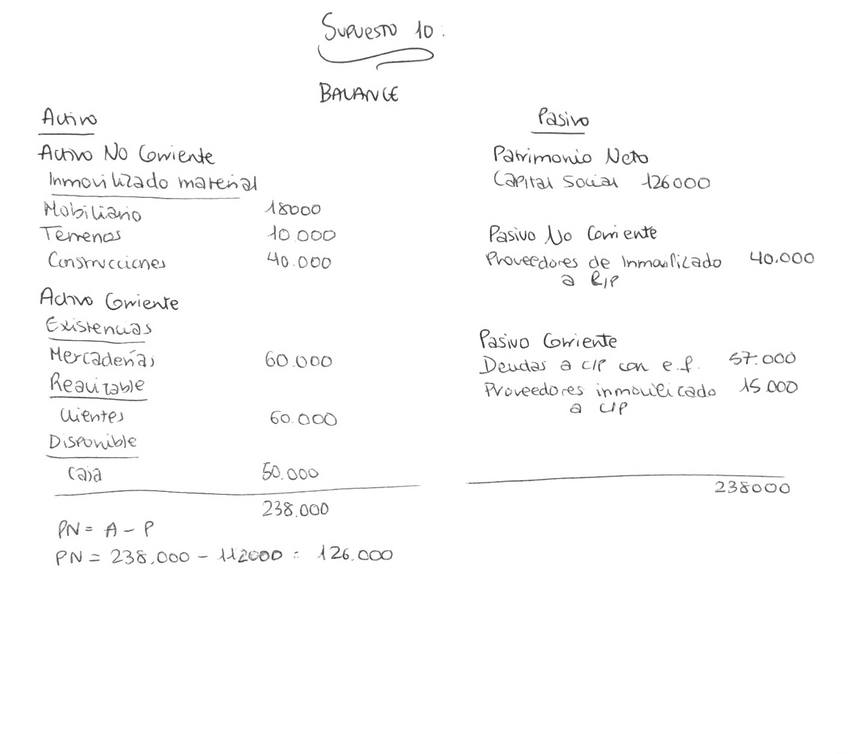 Supuesto 10:
BALANCE
Activo
Activo No Corriente
Inmovilizado material
Mobiliario 18000
Terrenos 10.000
Construcciones 40.000
Activo Corriente
Existencias
Mercaderías 60.000
Realizable
Clientes 60.000
Disponible
Caja 50.000
238.000
PN = A - P
PN = 238.000 - 112000 = 126.000
Pasivo
Patrimonio Neto
Capital Social 126000
Pasivo No Corriente
Proveedores de Inmovilizado 40.000
a R/P
Pasivo Corriente
Deudas a c/p con e.f. 57.000
Proveedores inmovilizado 15.000
a C/P
238000